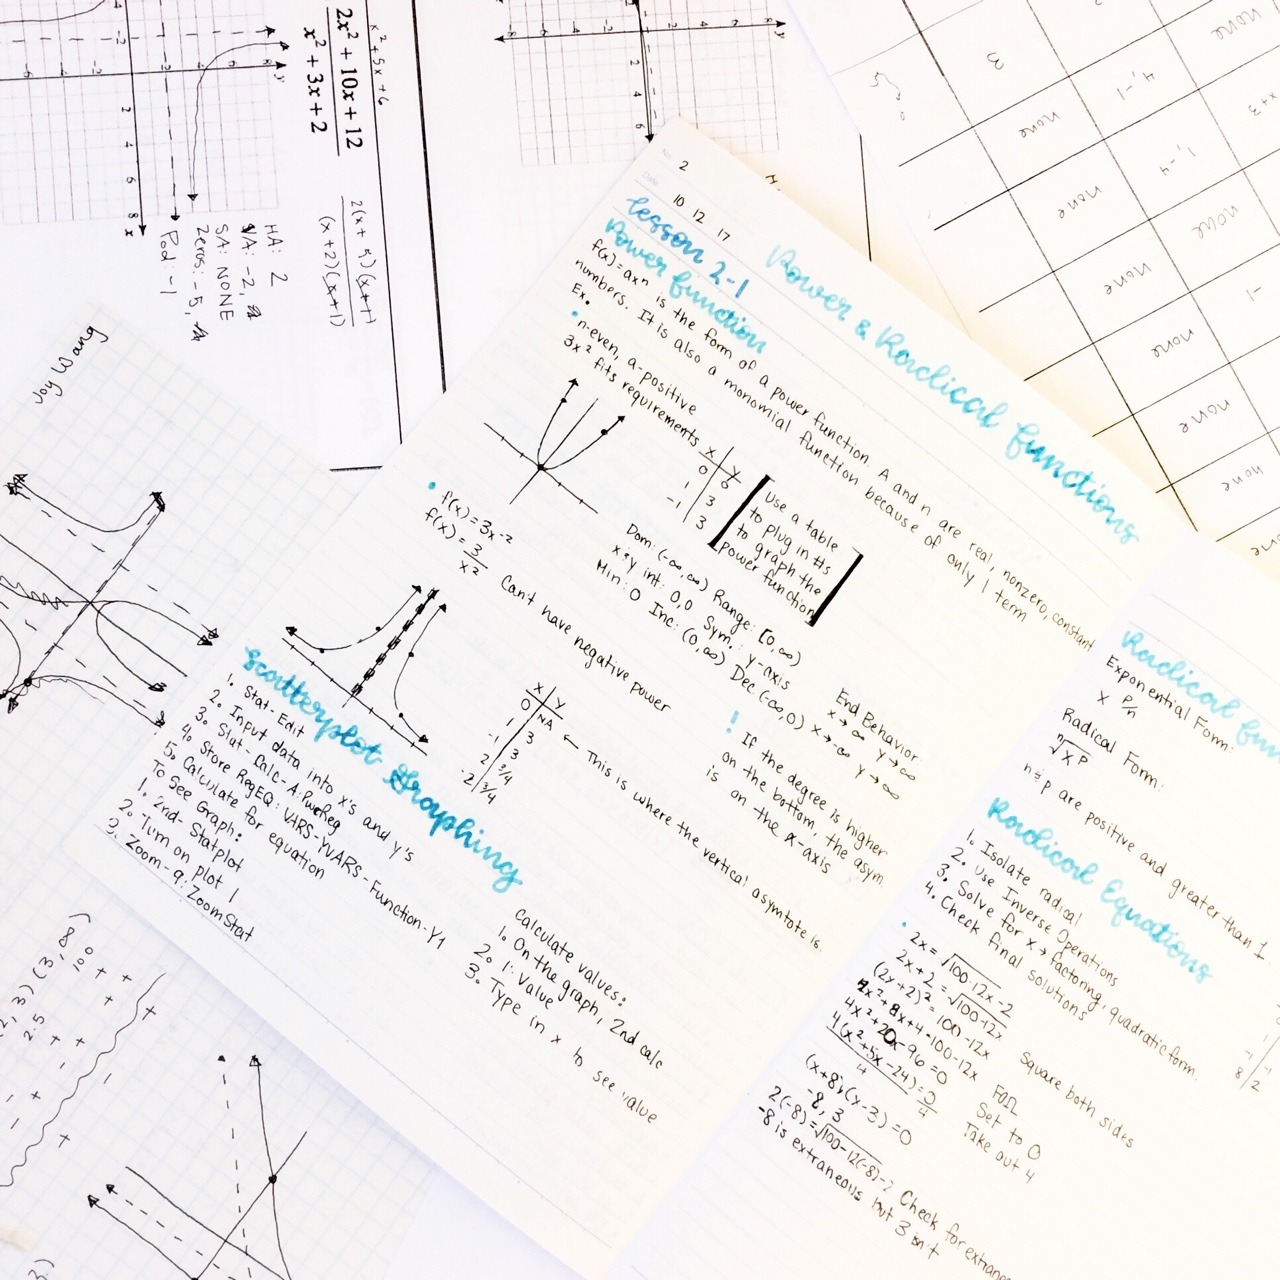 No. 2
Date 10 12 17
Power & Radical Functions
Lesson 2-1
Power function
f(x)=axⁿ is the form of a power function. A and n are real, nonzero, constant
numbers. It is also a monomial function because of only 1 term
Ex.
• n-even, a-positive
3x² fits requirements
x y
0 0
1 3
-1 3
Use a table
to plug in #s
to graph the
power function
Dom: (-∞,∞) Range: [0,∞)
x & y int: 0,0 Sym.: y-axis
Min: 0 Inc: (0,∞) Dec (-∞,0)
End Behavior:
x→∞ y→∞
x→-∞ y→∞
• f(x)=3x⁻²
f(x)=3/x²
Can't have negative power
x y
0 NA ← This is where the vertical asymtote is.
1 3
-1 3
2 3/4
-2 3/4
! If the degree is higher
on the bottom, the asym.
is on the x-axis
Scatterplot Graphing
1. Stat-Edit
2. Input data into x's and y's
3. Stat-Calc-A:PwrReg
4. Store RegEQ: VARS-YVARS-Function-Y1
5. Calculate for equation
To See Graph:
1. 2nd-Statplot
2. Turn on plot 1
3. Zoom-9:ZoomStat
Calculate values:
1. On the graph, 2nd calc
2. 1: Value
3. Type in x to see value
Radical fun
Exponential Form:
x p/n
Radical Form:
ⁿ√xᴾ
n & p are positive and greater than 1.
Radical Equations
1. Isolate radical
2. Use Inverse Operations
3. Solve for x → factoring, quadratic form.
4. Check final solutions
• 2x=√100-12x-2
2x+2=√100-12x
(2x+2)²=100-12x Square both sides
4x²+8x+4=100-12x FOIL
4x²+20x-96=0 Set to 0
4(x²+5x-24)=0 Take out 4
4 4
(x+8)(x-3)=0
-8, 3
2(-8)=√100-12(-8)-2 Check for extrane
-8 is extraneous but 3 isn't
x²+5x+6
2x²+10x+12
x²+3x+2
(x+2)(x+1)
HA: 2
VA: -2,
SA: NONE
Zeros: -5,
Pod: -1
Joy Wang
2, 3) (3, ∞)
2.5 100
3
none
4,-1
none
1,-4
none
none
none
-1
none
none
none
x+3
none